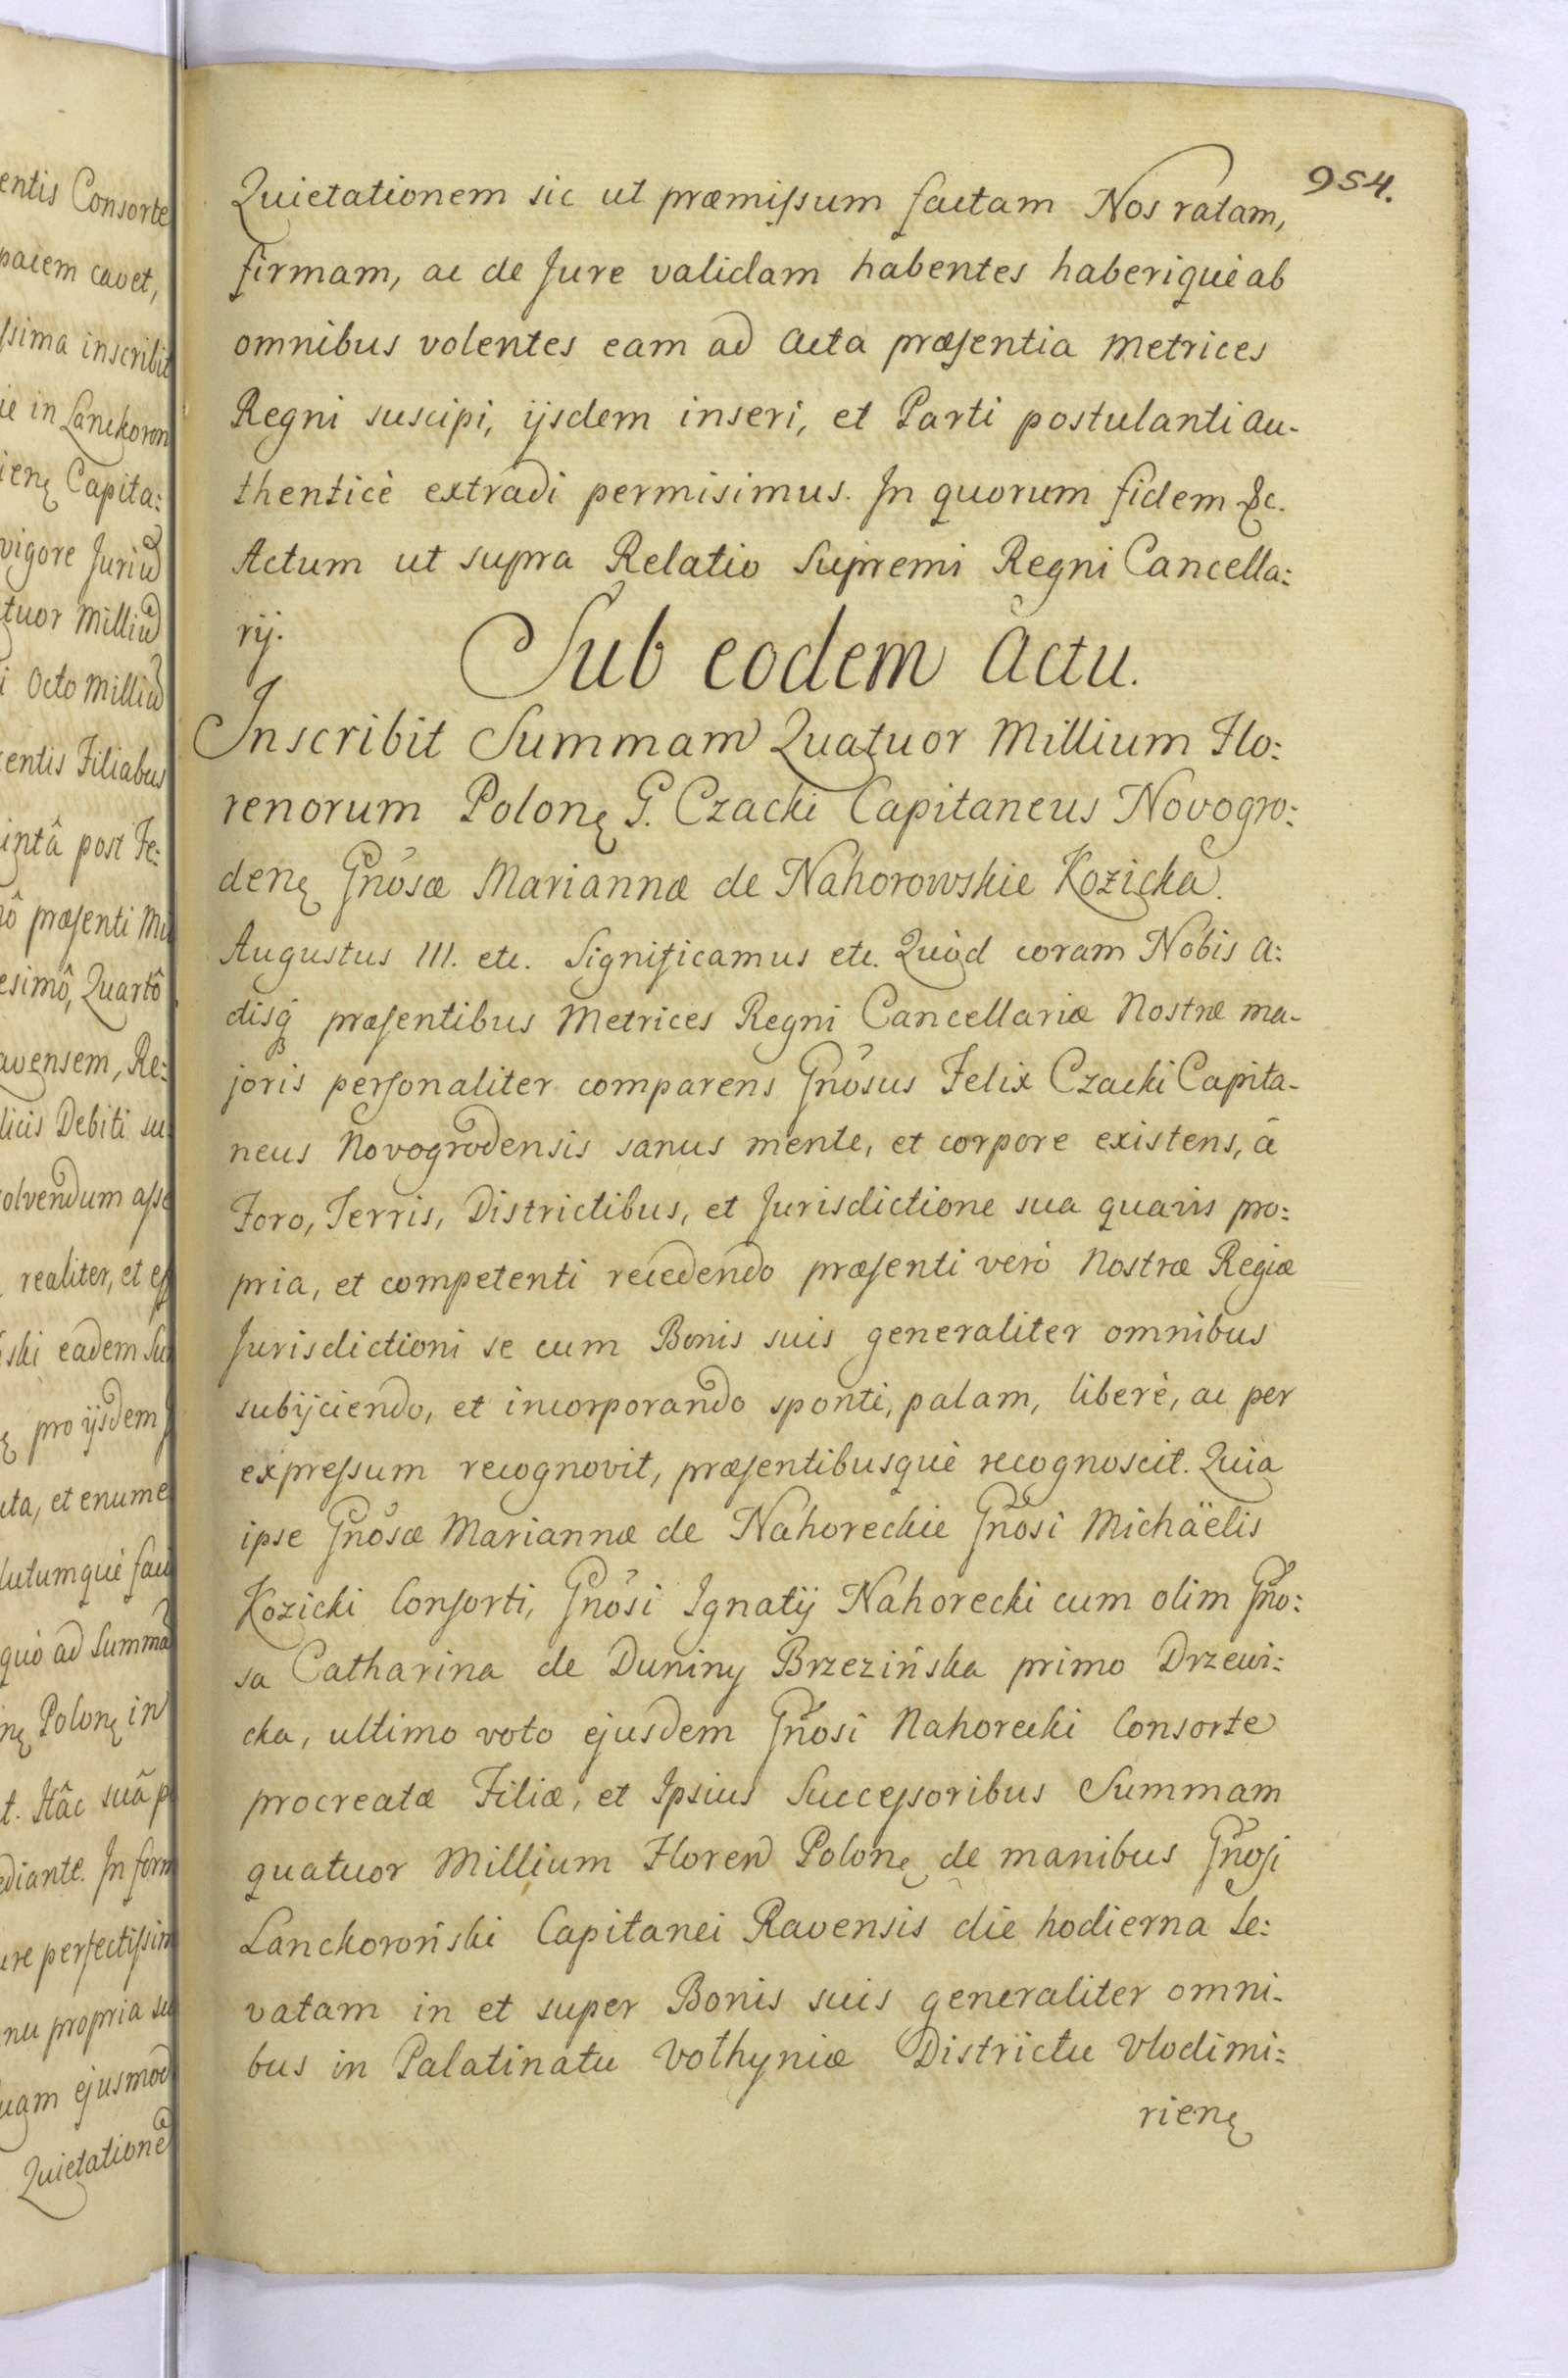 954.
Quietationem sic ut præmissum factam Nos ratam,
firmam, ac de Jure validam habentes haberiquè ab
omnibus volentes eam ad acta præsentia Metrices
Regni suscipi, ijsdem inseri, et Parti postulanti au-
thenticè extradi permisimus. In quorum fidem &c.
Actum ut supra Relatio Supremi Regni Cancella:
rij.
Sub eodem Actu.
Inscribit Summam Quatuor Millium Flo:
renorum Polonę G. Czacki Capitaneus Novogro:
denę Gnosæ Mariannæ de Nahorowskie Kozicka.
Augustus III. etc. Significamus etc. Quòd coram Nobis A:
ctisq́ præsentibus Metrices Regni Cancellariæ Nostræ ma-
joris personaliter comparens Gnosus Felix Czacki Capita-
neus Novogrodensis sanus mente, et corpore existens, â
Foro, Terris, Districtibus, et Jurisdictione sua quavis pro:
pria, et competenti recedendo præsenti verò Nostræ Regiæ
Jurisdictioni se cum Bonis suis generaliter omnibus
subijciendo, et incorporando spontè, palam, liberè, ac per
expressum recognovit, præsentibusquè recognoscit. Quia
ipse Gnosæ Mariannæ de Nahoreckie Gnosi Michäelis
Kozicki Consorti, Gnosi Ignatij Nahorecki cum olim Gno:
sa Catharina de Duniny Brzezińska primo Drzewi:
cka, ultimo voto ejusdem Gnosi Nahorecki Consorte
procreatæ Filiæ, et Ipsius Successoribus Summam
quatuor Millium Floren Polonę de manibus Gnosi
Lanckoroński Capitanei Ravensis die hodierna le:
vatam in et super Bonis suis generaliter omni-
bus in Palatinatu Volhyniæ Districtu Vlodimi:
rienę
entis Consorte
pacem cavet,
ssima inscribit
ie in Lanckoron
ienę Capita:
vigore Juriu
tuor Milliu
i Octo Milliu
entis Filiabus
intâ post Fe:
nô præsenti Mi
esimô, Quartô
avensem, Re:
licis Debiti su
olvendum asse
realiter, et ef
ski eadem Su
ę pro ijsdem
uta, et enume
lutumquè fac
quò ad Summa
nę Polonę in
t. Hâc suâ p
ediante. In form
ure perfectissim
nu propria su
uam ejusmod
Quietatione